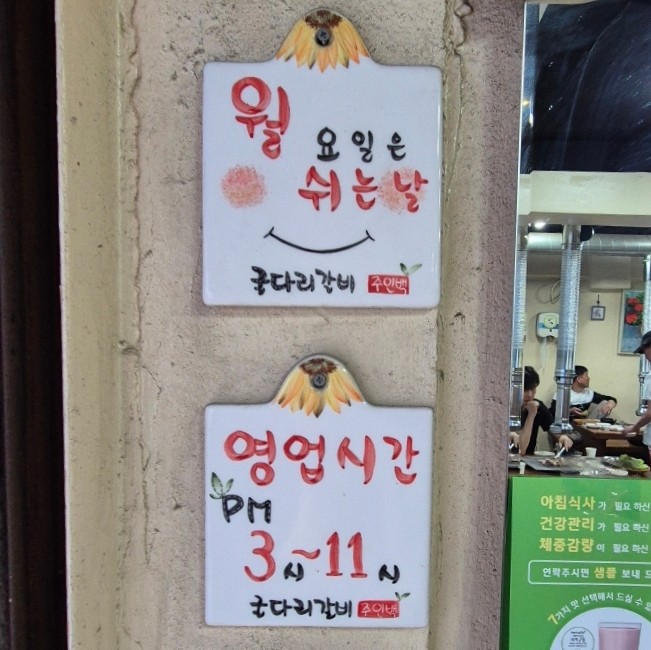 월
요일은
쉬는날
굴다리갈비 주인백
영업시간
PM
3시~11시
굴다리갈비 주인백
아침식사가 필요하신
건강관리가 필요하신
체중감량이 필요하신
연락주시면 샘플 보내드
7가지 맛 선택해서 드실 수 있